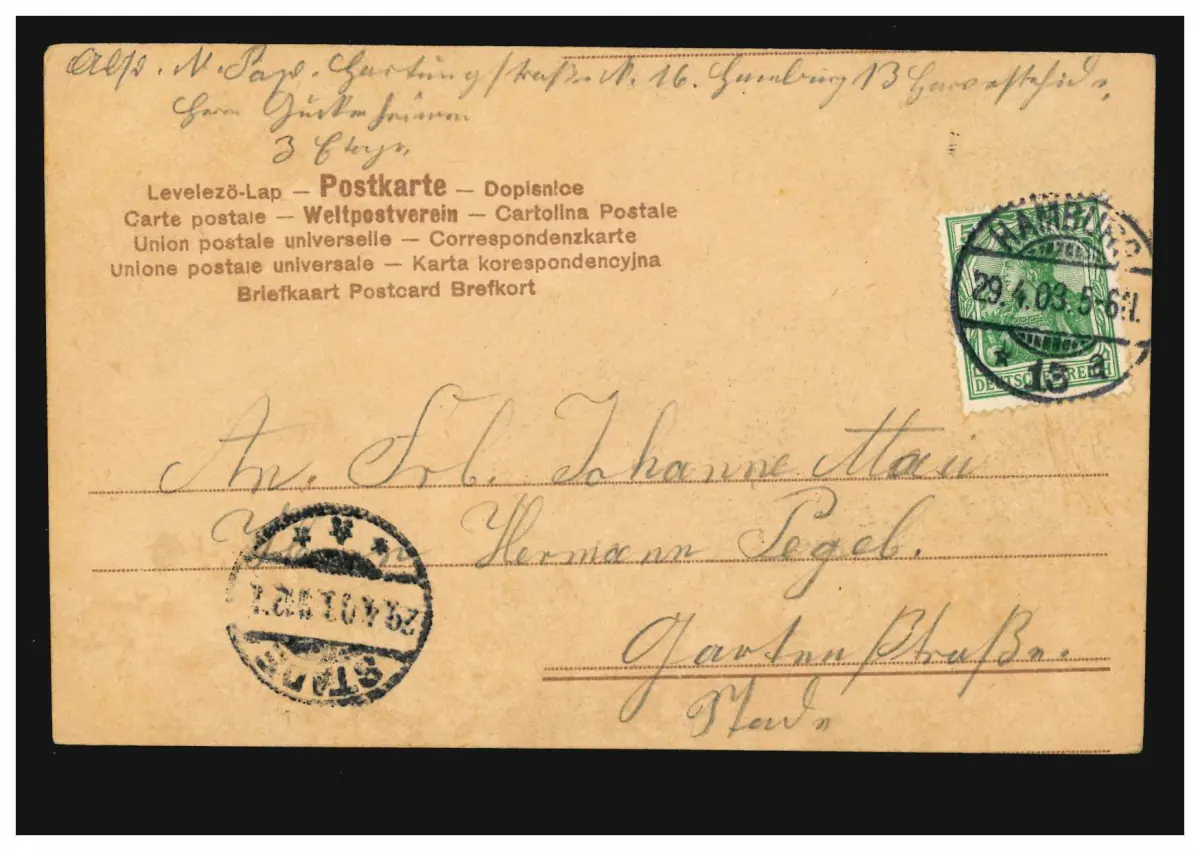 Abs. N. Pape. Hartungstraße N. 16. Hamburg 13 Harvestehude,
Herrn
3 Etage,
Levelezö-Lap — Postkarte — Dopisnice
Carte postale — Weltpostverein — Cartolina Postale
Union postale universelle — Correspondenzkarte
Unione postale universale — Karta korespondencyjna
Briefkaart Postcard Brefkort
HAMBURG
29.4.03. 5-6N.
* 13 a
DEUTSCHES REICH
An. Frl. Johanne Mau
Hermann Pegel.
Gartenstraße.
Stade
29.4.03.
STADE